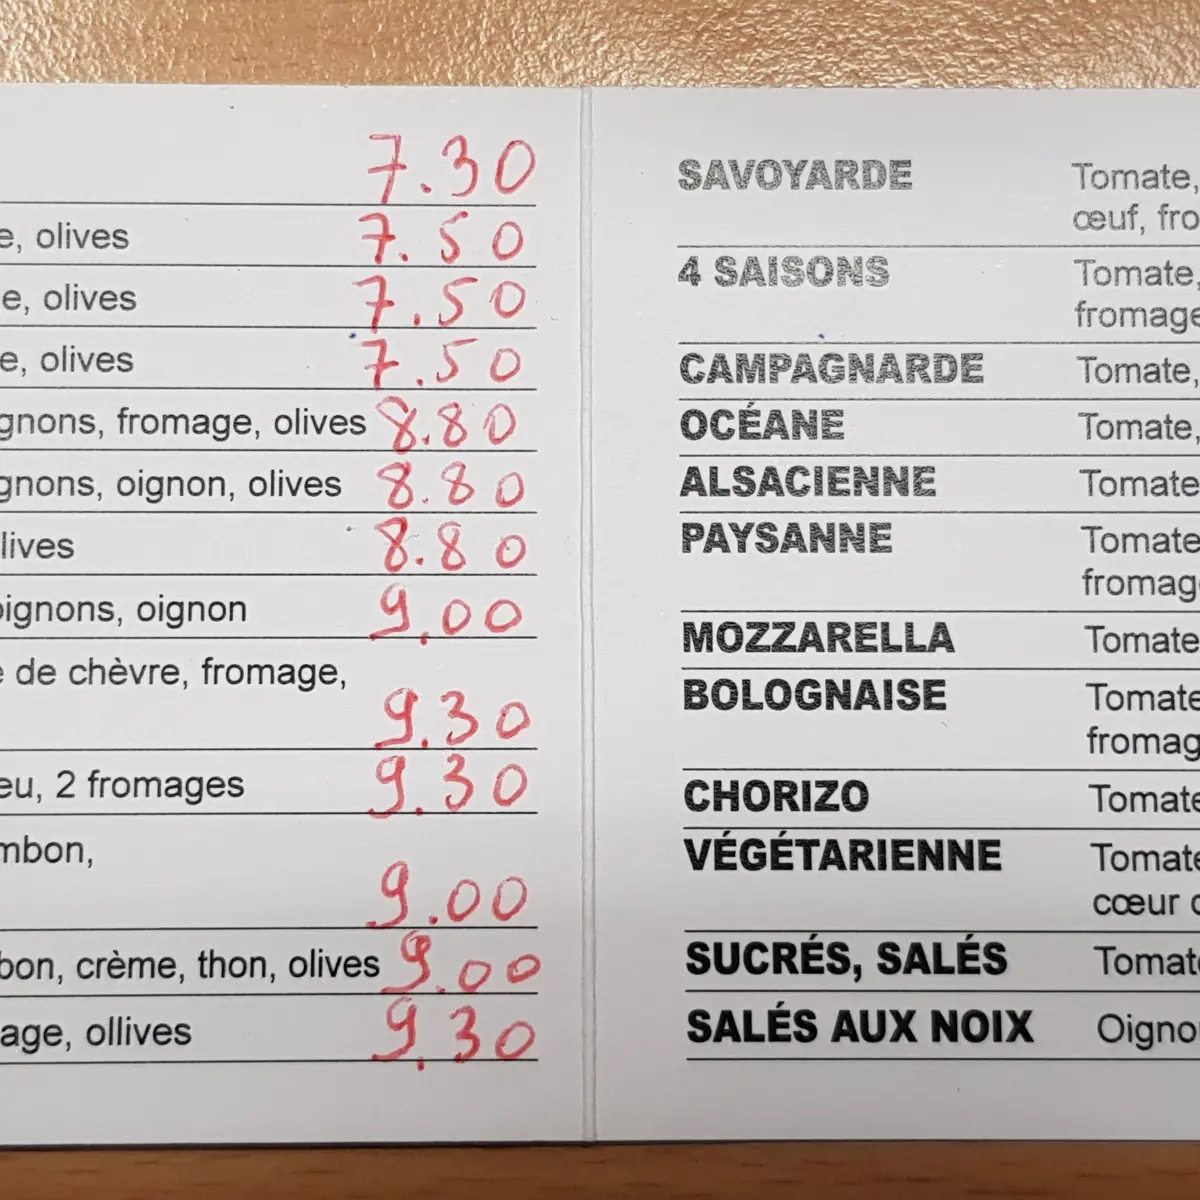 7.30
olives 7.50
olives 7.50
olives 7.50
fromage, olives 8.80
oignon, olives 8.80
8.80
oignon 9.00
de chèvre, fromage,
9.30
2 fromages 9.30
9.00
crème, thon, olives 9.00
ollives 9.30
SAVOYARDE Tomate,
œuf,
4 SAISONS Tomate,
fromage
CAMPAGNARDE Tomate,
OCÉANE Tomate,
ALSACIENNE Tomate
PAYSANNE Tomate
MOZZARELLA Tomate
BOLOGNAISE Tomate
CHORIZO Tomate
VÉGÉTARIENNE Tomate
cœur
SUCRÉS, SALÉS
SALÉS AUX NOIX